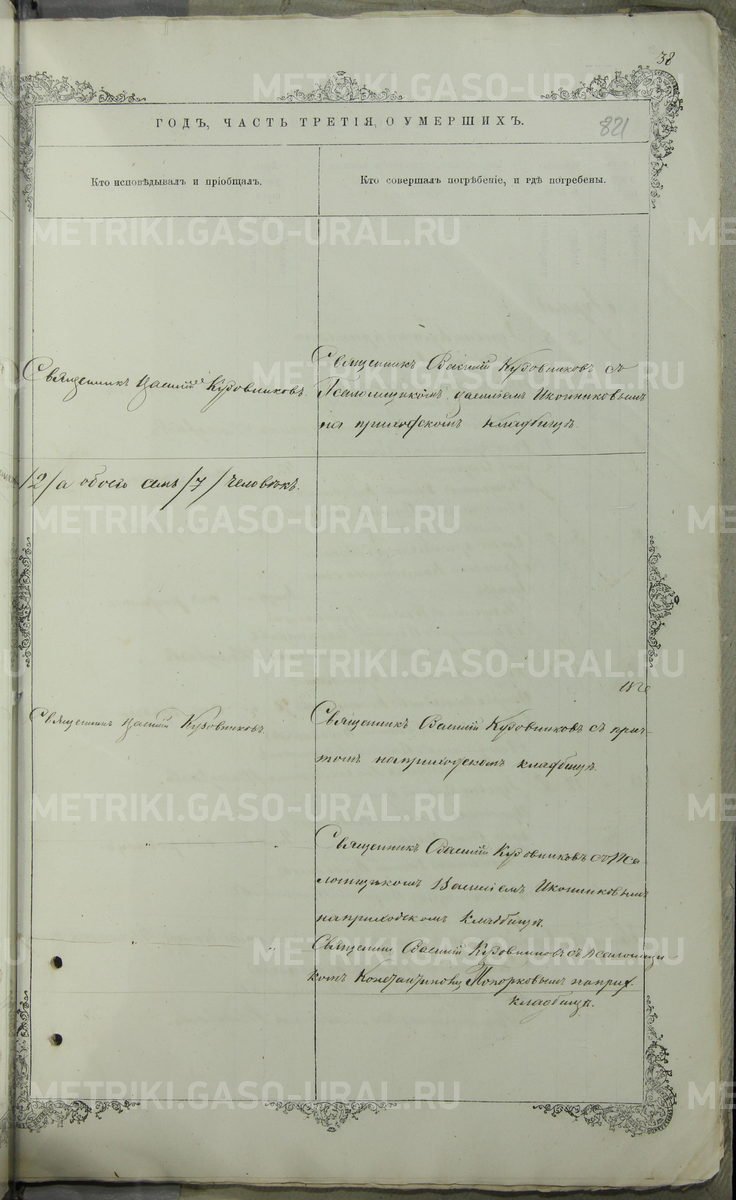 38
ГОДЪ, ЧАСТЬ ТРЕТІЯ, О УМЕРШИХЪ.
821
Кто исповѣдывалъ и пріобщалъ.
Кто совершалъ погрѣбеніе, и гдѣ погребены.
Священникъ Василій Кузовниковъ.
Священникъ Василій Кузовниковъ съ
Псаломщикомъ Иконниковымъ
на приходскомъ кладбищѣ.
/2/ а обоего семь /7/ человѣкъ.
Священникъ Василій Кузовниковъ.
Священникъ Василій Кузовниковъ съ прич-
томъ на приходскомъ кладбищѣ.
Священникъ Василій Кузовниковъ съ Пса-
ломщикомъ Василіемъ Иконниковымъ
на приходскомъ кладбищѣ.
Священникъ Василій Кузовниковъ съ псаломщи-
комъ Топорковымъ на прих.
кладбищѣ.
METRIKI.GASO-URAL.RU